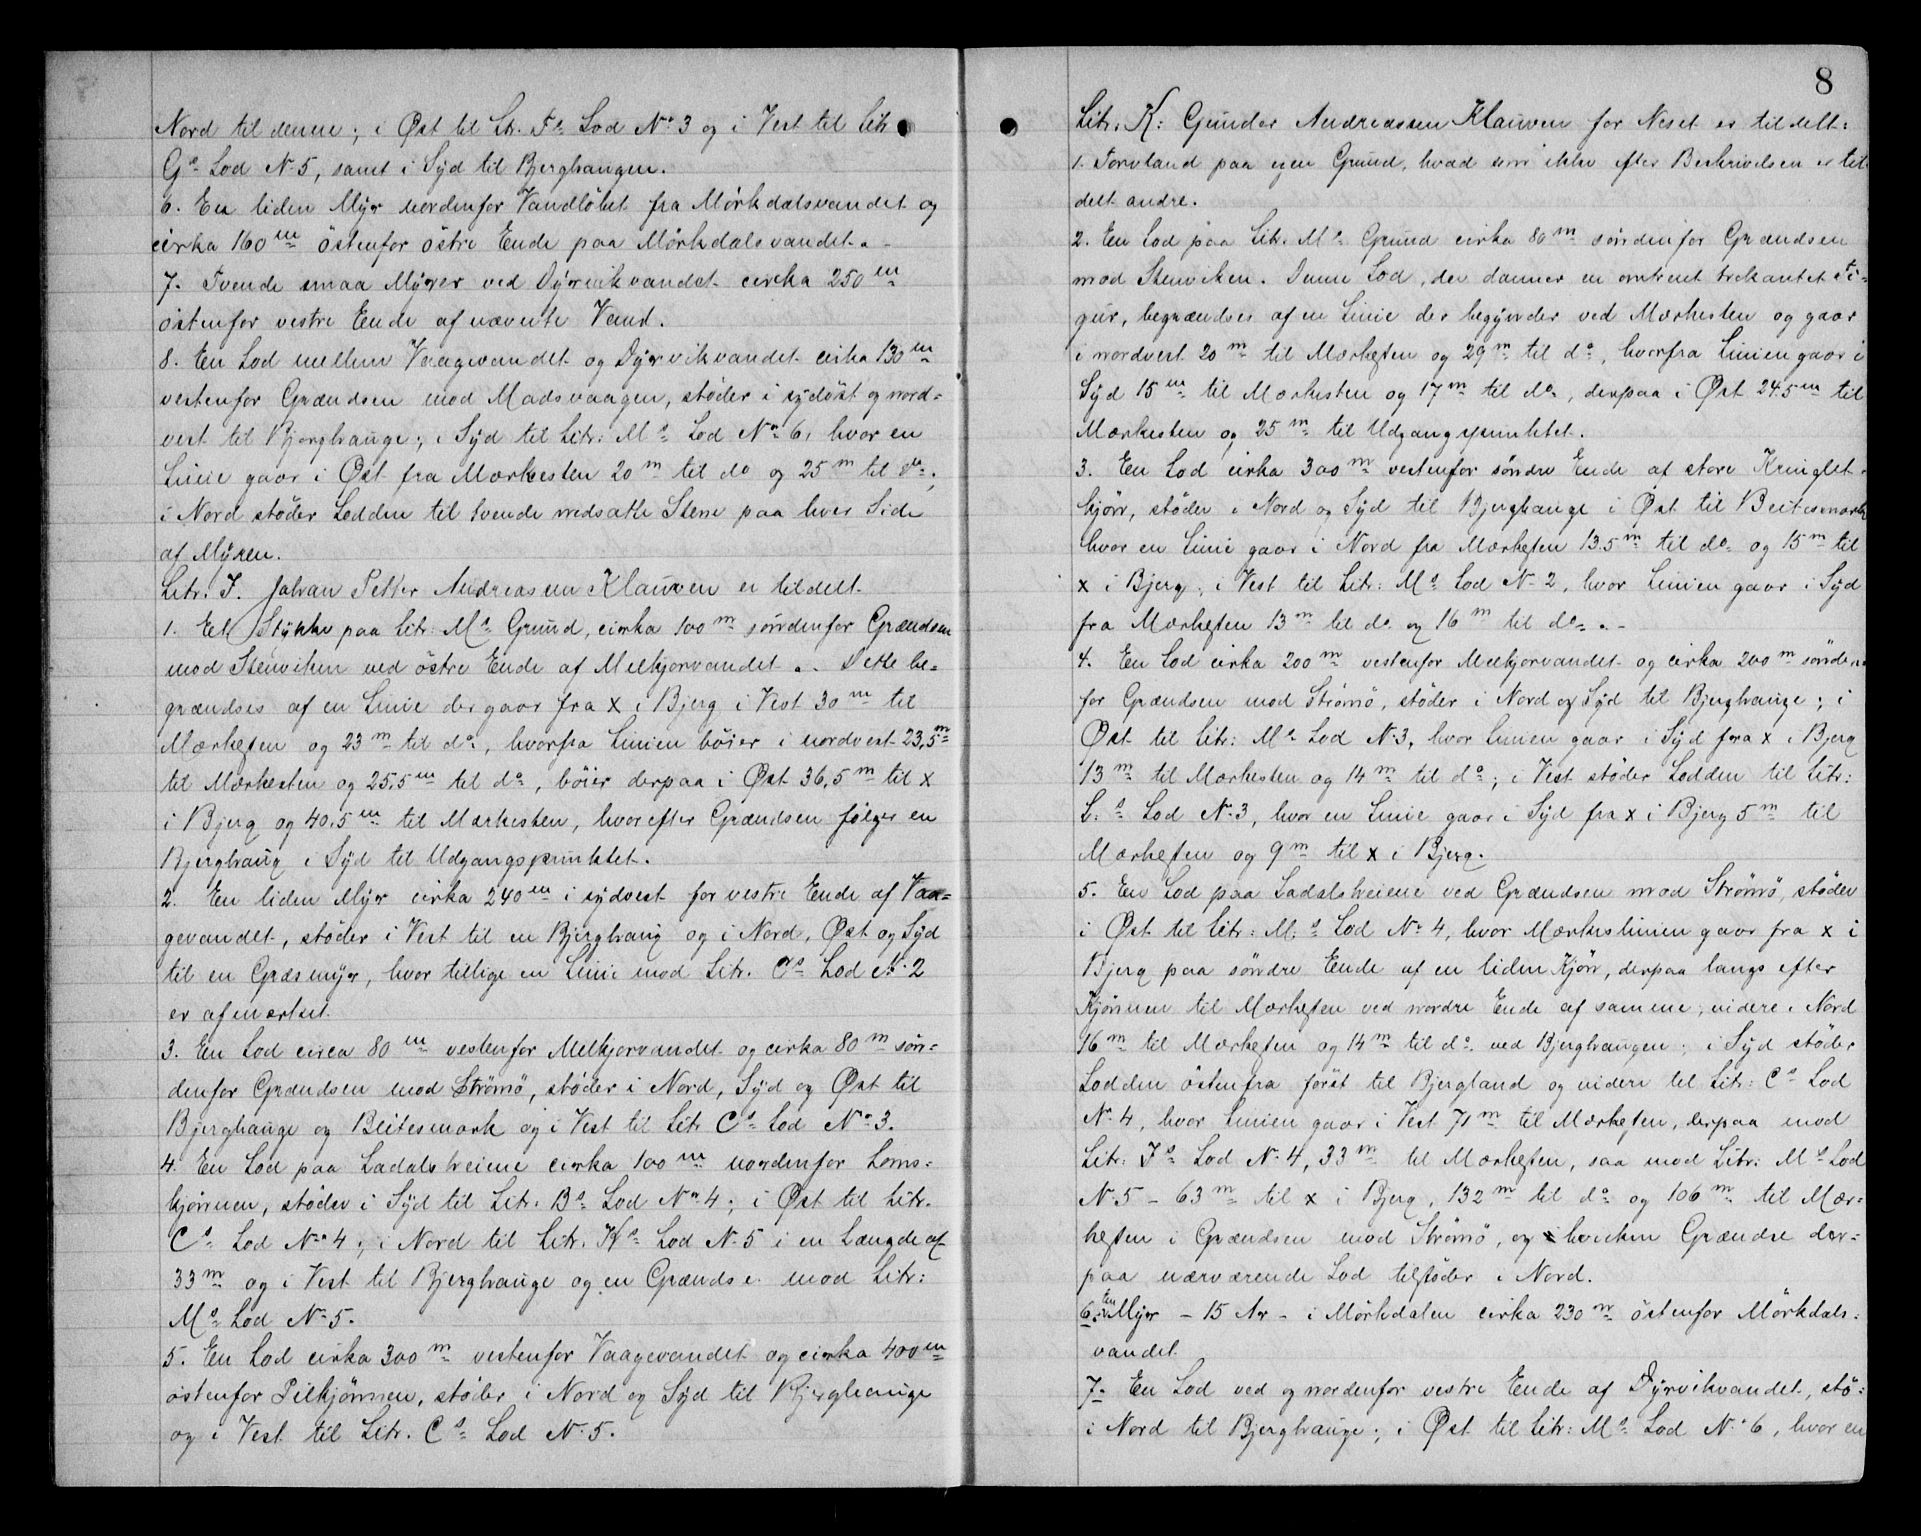 Nord til denne; i Øst til Lit. Fs Lod No 3 og i Vest til Litr
Gs Lod N. 5, samt i Syd til Bjerghangen.
6. En liden Myr nordenfor Vandløbet fra Mörkdalsvandet og
cirka 160 m östenfor östre Ende paa Mörkdalsvandet.
7. Tvende smaa Myrer ved Dyrvikvandet cirka 250 m
östenfor vestre Ende af nævnte Vand.
8. En Lod mellem Vaagevandet og Dyrvikvandet cirka 130 m
vestenfor Grændsen mod Madsvaagen, støder i sydöst og nord=
vest til Bjerghauge; i Syd til Litr: Ms Lod No 6, hvor en
Linie gaar i Øst fra Mærkesten 20 m til do og 25 m til do;
i Nord støder Lodden til tvende nedsatte Stene paa hver Side
af Myren.
Litr. J. Johan Petter Andreassen Klauven er tildelt
1. Et Stykke paa Litr: Ms Grund, cirka 100 m søndenfor Grændsen
mod Stenviken ved östre Ende af Melkjorvandet. Dette be=
grændses af en Linie der gaar fra x i Bjerg i Vest 30 m til
Mærkesten og 23 m til do, hvorfra Linien böier i nordvest 23,5 m
til Mærkesten og 25,5 m til do, böier derpaa i Øst 36,5 m til x
i Bjerg og 40,5 m til Mærkesten, hvorefter Grændsen følger en
Bjerghaug i Syd til Udgangspunktet.
2. En liden Myr cirka 240 m i sydvest for vestre Ende af Vaa=
gevandet, støder i Vest til en Bjerghaug og i Nord, Øst og Syd
til en Græsmyr, hvor tillige en Linie mod Litr. Cs Lod N. 2
er afmærket.
3. En Lod circa 80 m vestenfor Melkjorvandet og cirka 80 m søn=
denfor Grændsen mod Strömö, støder i Nord, Syd og Øst til
Bjerghauge og Beitesmark og i Vest til Litr Cs Lod No 3.
4. En Lod paa Ladalsheiene cirka 100 m nordenfor Loms=
kjönnen, støder i Syd til Litr. Bs Lod No 4; i Øst til Litr.
Cs Lod No 4; i Nord til Litr. Ks Lod N. 5 i en Længde af
33 m og i Vest til Bjerghauge og en Grændse mod Litr:
Ms Lod N. 5.
5. En Lod cirka 300 m vestenfor Vaagevandet og cirka 400 m
östenfor Pilkjönnen, støder i Nord og Syd til Bjerghauge
og i Vest til Litr. Cs Lod N. 5.
8
Litr. K: Gunder Andreassen Klauven for Neset er tildelt:
1. Torvland paa egen Grund, hvad som ikke efter Beskrivelsen er til=
delt andre.
2. En Lod paa Litr. Ms Grund cirka 80 m søndenfor Grændsen
mod Stenviken. Denne Lod, der danner en omtrent trekantet Fi=
gur, begrændses af en Linie der begynder ved Mærkesten og gaar
i nordvest 20 m til Mærkesten og 29 m til do, hvorfra Linien gaar i
Syd 15 m til Mærkesten og 17 m til do, derpaa i Øst 24.5 m til
Mærkesten og 25 m til Udgangspunktet.
3. En Lod cirka 300 m vestenfor søndre Ende af store Kringlet=
kjörn, støder i Nord og Syd til Bjerghauge i Øst til Beitesmark
hvor en Linie gaar i Nord fra Mærkesten 13.5 m til do og 15 m til
x i Bjerg; i Vest til Litr: Ms Lod N. 2, hvor Linien gaar i Syd
fra Mærkesten 13 m til do og 16 m til do.
4. En Lod cirka 200 m vestenfor Melkjorvandet og cirka 200 m sønden=
for Grændsen mod Strömö, støder i Nord og Syd til Bjerghauge; i
Øst til Litr: Ms Lod N. 3, hvor Linien gaar i Syd fra x i Bjerg
13 m til Mærkesten og 14 m til do; i Vest støder Lodden til Litr:
L.s Lod N. 3, hvor en Linie gaar i Syd fra x i Bjerg 5 m til
Mærkesten og 9 m til x i Bjerg.
5. En Lod paa Ladalsheiene ved Grændsen mod Strömö, støder
i Øst til Litr: M.s Lod No 4, hvor Mærkeslinien gaar fra x i
Bjerg paa søndre Ende af en liden Kjörn, derpaa langs efter
Kjönnen til Mærkesten ved nordre Ende af samme; videre i Nord
16 m til Mærkesten og 14 m til do ved Bjerghangen; i Syd støder
Lodden östenfra först til Bjergland og videre til Litr: Cs Lod
No 4, hvor Linien gaar i Vest 71 m til Mærkesten, derpaa mod
Litr: Js Lod N. 4, 33 m til Mærkesten, saa mod Litr: Ms Lod
N. 5 - 63 m til x i Bjerg, 132 m til do og 106 m til Mær=
kesten i Grændsen mod Strömö, og hvilken Grændse der=
paa nærværende Lod tilstöder i Nord.
6. En Myr - 15 Ar - i Mörkdalen cirka 230 m östenfor Mörkdals=
vandet.
7. En Lod ved og nordenfor vestre Ende af Dyrvikvandet, stö=
i Nord til Bjerghauge; i Øst til Litr: Ms Lod No 6, hvor en